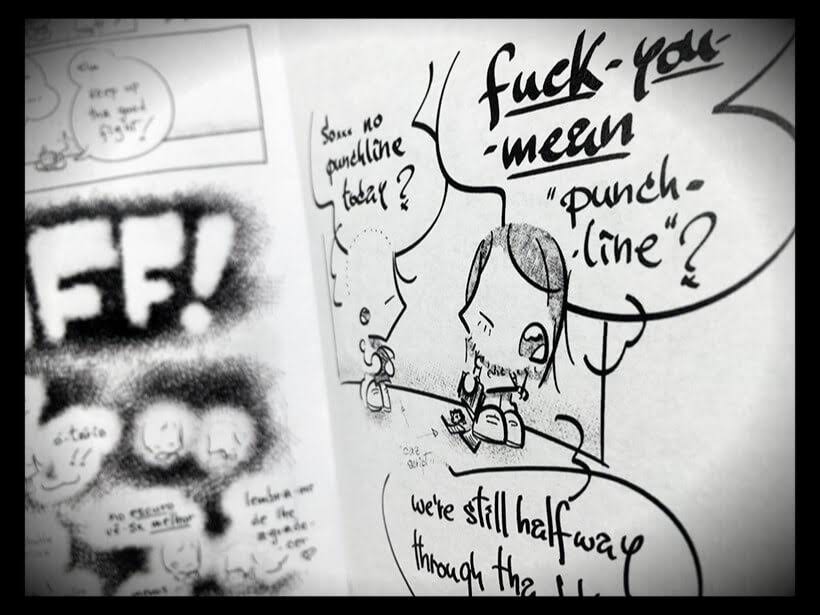 keep up
the good
fight!
FF!
no escuro
vê-se melhor
lembra-me
de lhe
agrade-
cer
Soooo no
punchline
today?
fuck-you-
-mean
"punch-
-line"?
we're still halfway
through the